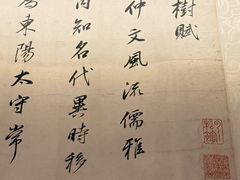 樹賦
仲文風流儒雅
內知名代異時移
為東陽太守常